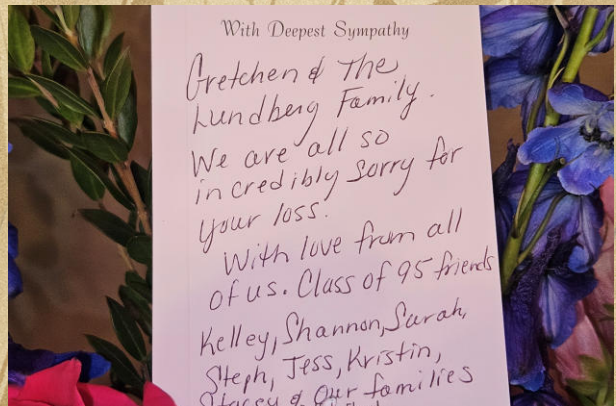 With Deepest Sympathy
Gretchen & The
Lundberg Family.
We are all so
incredibly sorry for
your loss.
With love from all
of us. Class of 95 friends
Kelley, Shannon, Sarah,
Steph, Jess, Kristin,
Stacey & Our families